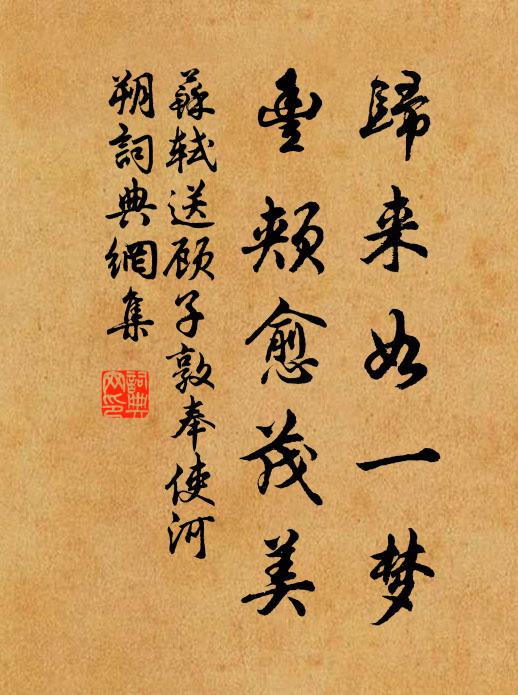 歸来如一梦
豊頰愈茂美
蘇軾送顾子敦奉使河
朔詞典網集
詞典
网印